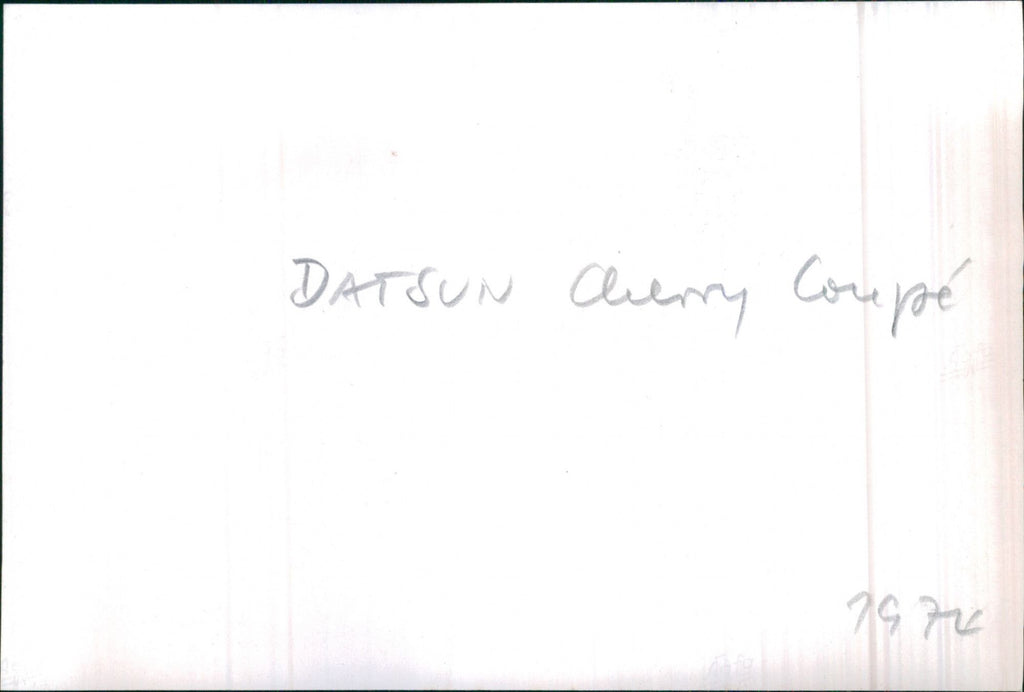 DATSUN Cherry Coupé
1974